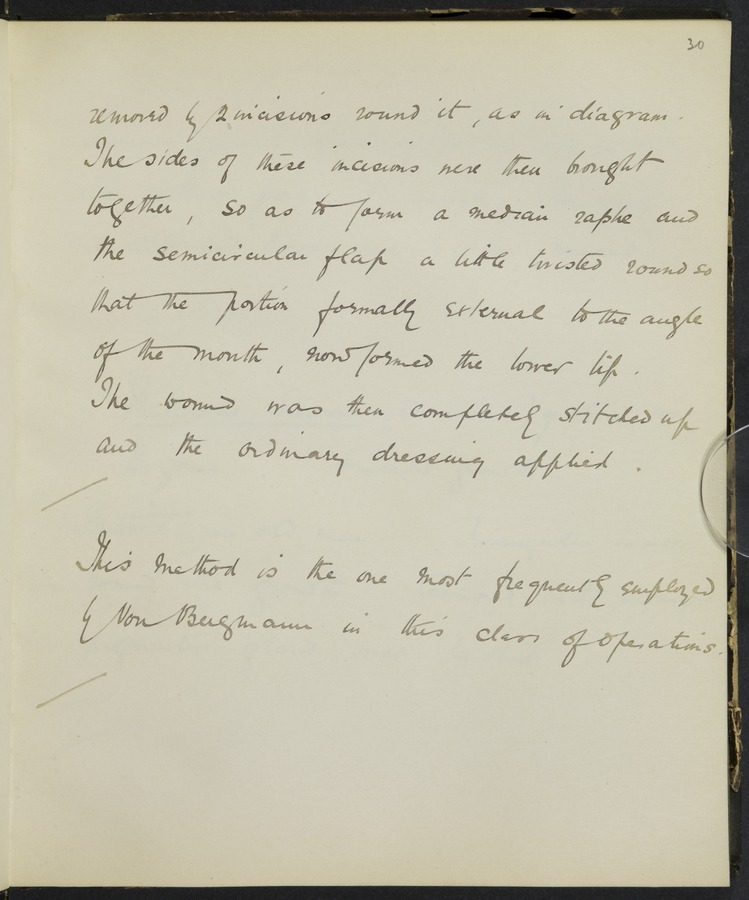 30
removed by 2 incisions round it, as in diagram.
The sides of these incisions were then brought
together, so as to form a median raphe and
the semicircular flap a little twisted round so
that the portion formally external to the angle
of the mouth, now formed the lower lip.
The wound was then completely stitched up
and the ordinary dressing applied.
This method is the one most frequently employed
by Von Bergmann in this class of operations.